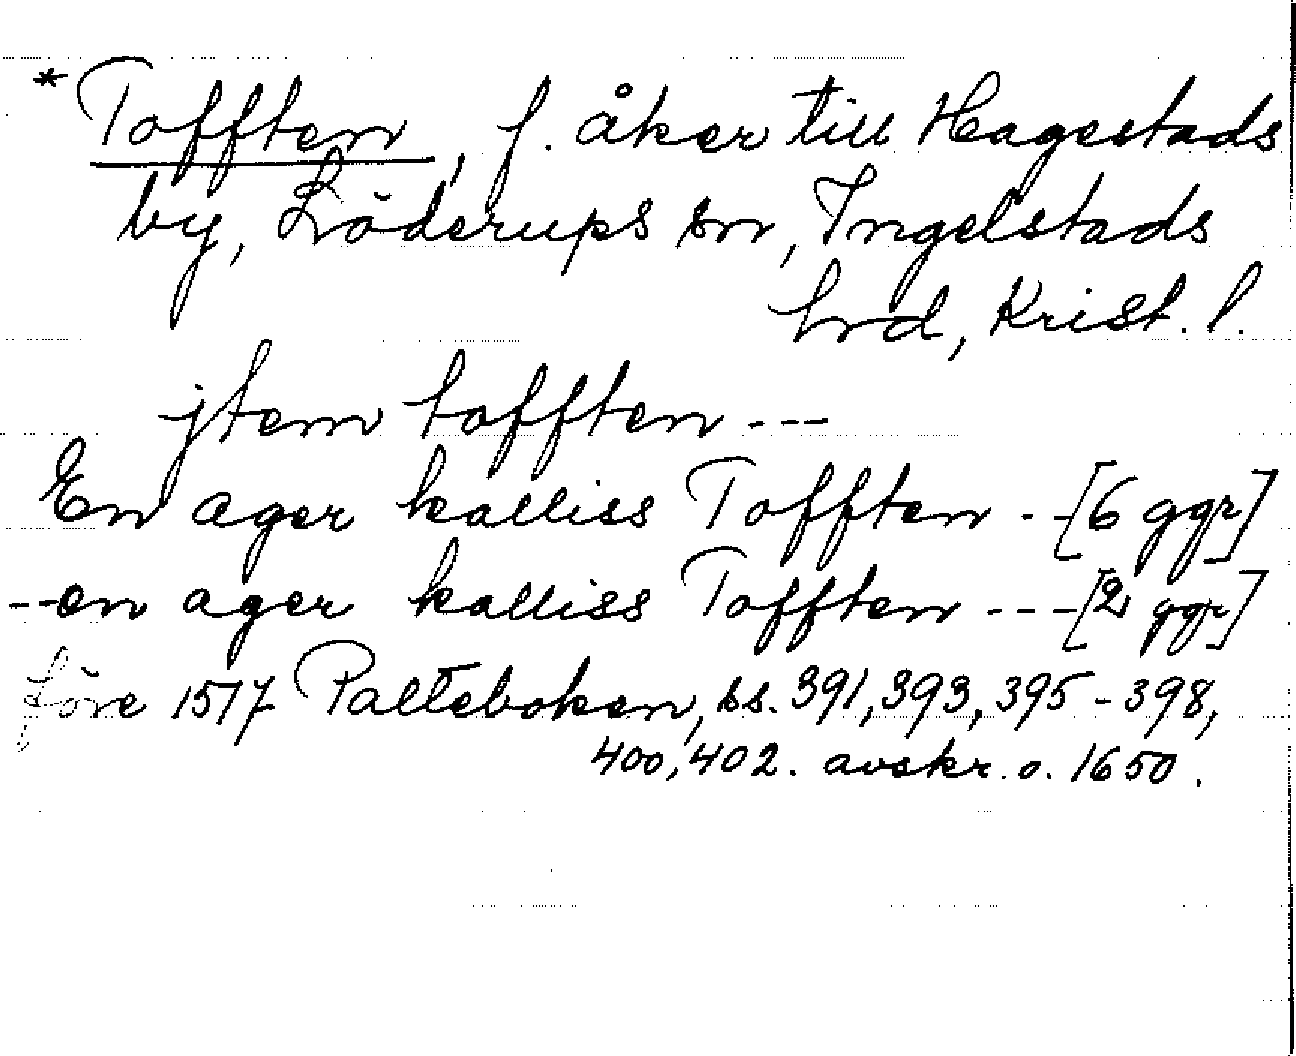 *Tofften, f. åker till Hagestads
by, Löderups sn, Ingelstads
hrd, Krist. l.
jtem tofften ---
En ager kalliss Tofften - -[6 ggr]
--en ager kalliss Tofften ---[2 ggr]
före 1517 Palteboken, ss. 391, 393, 395-398,
400, 402. avskr. o. 1650.